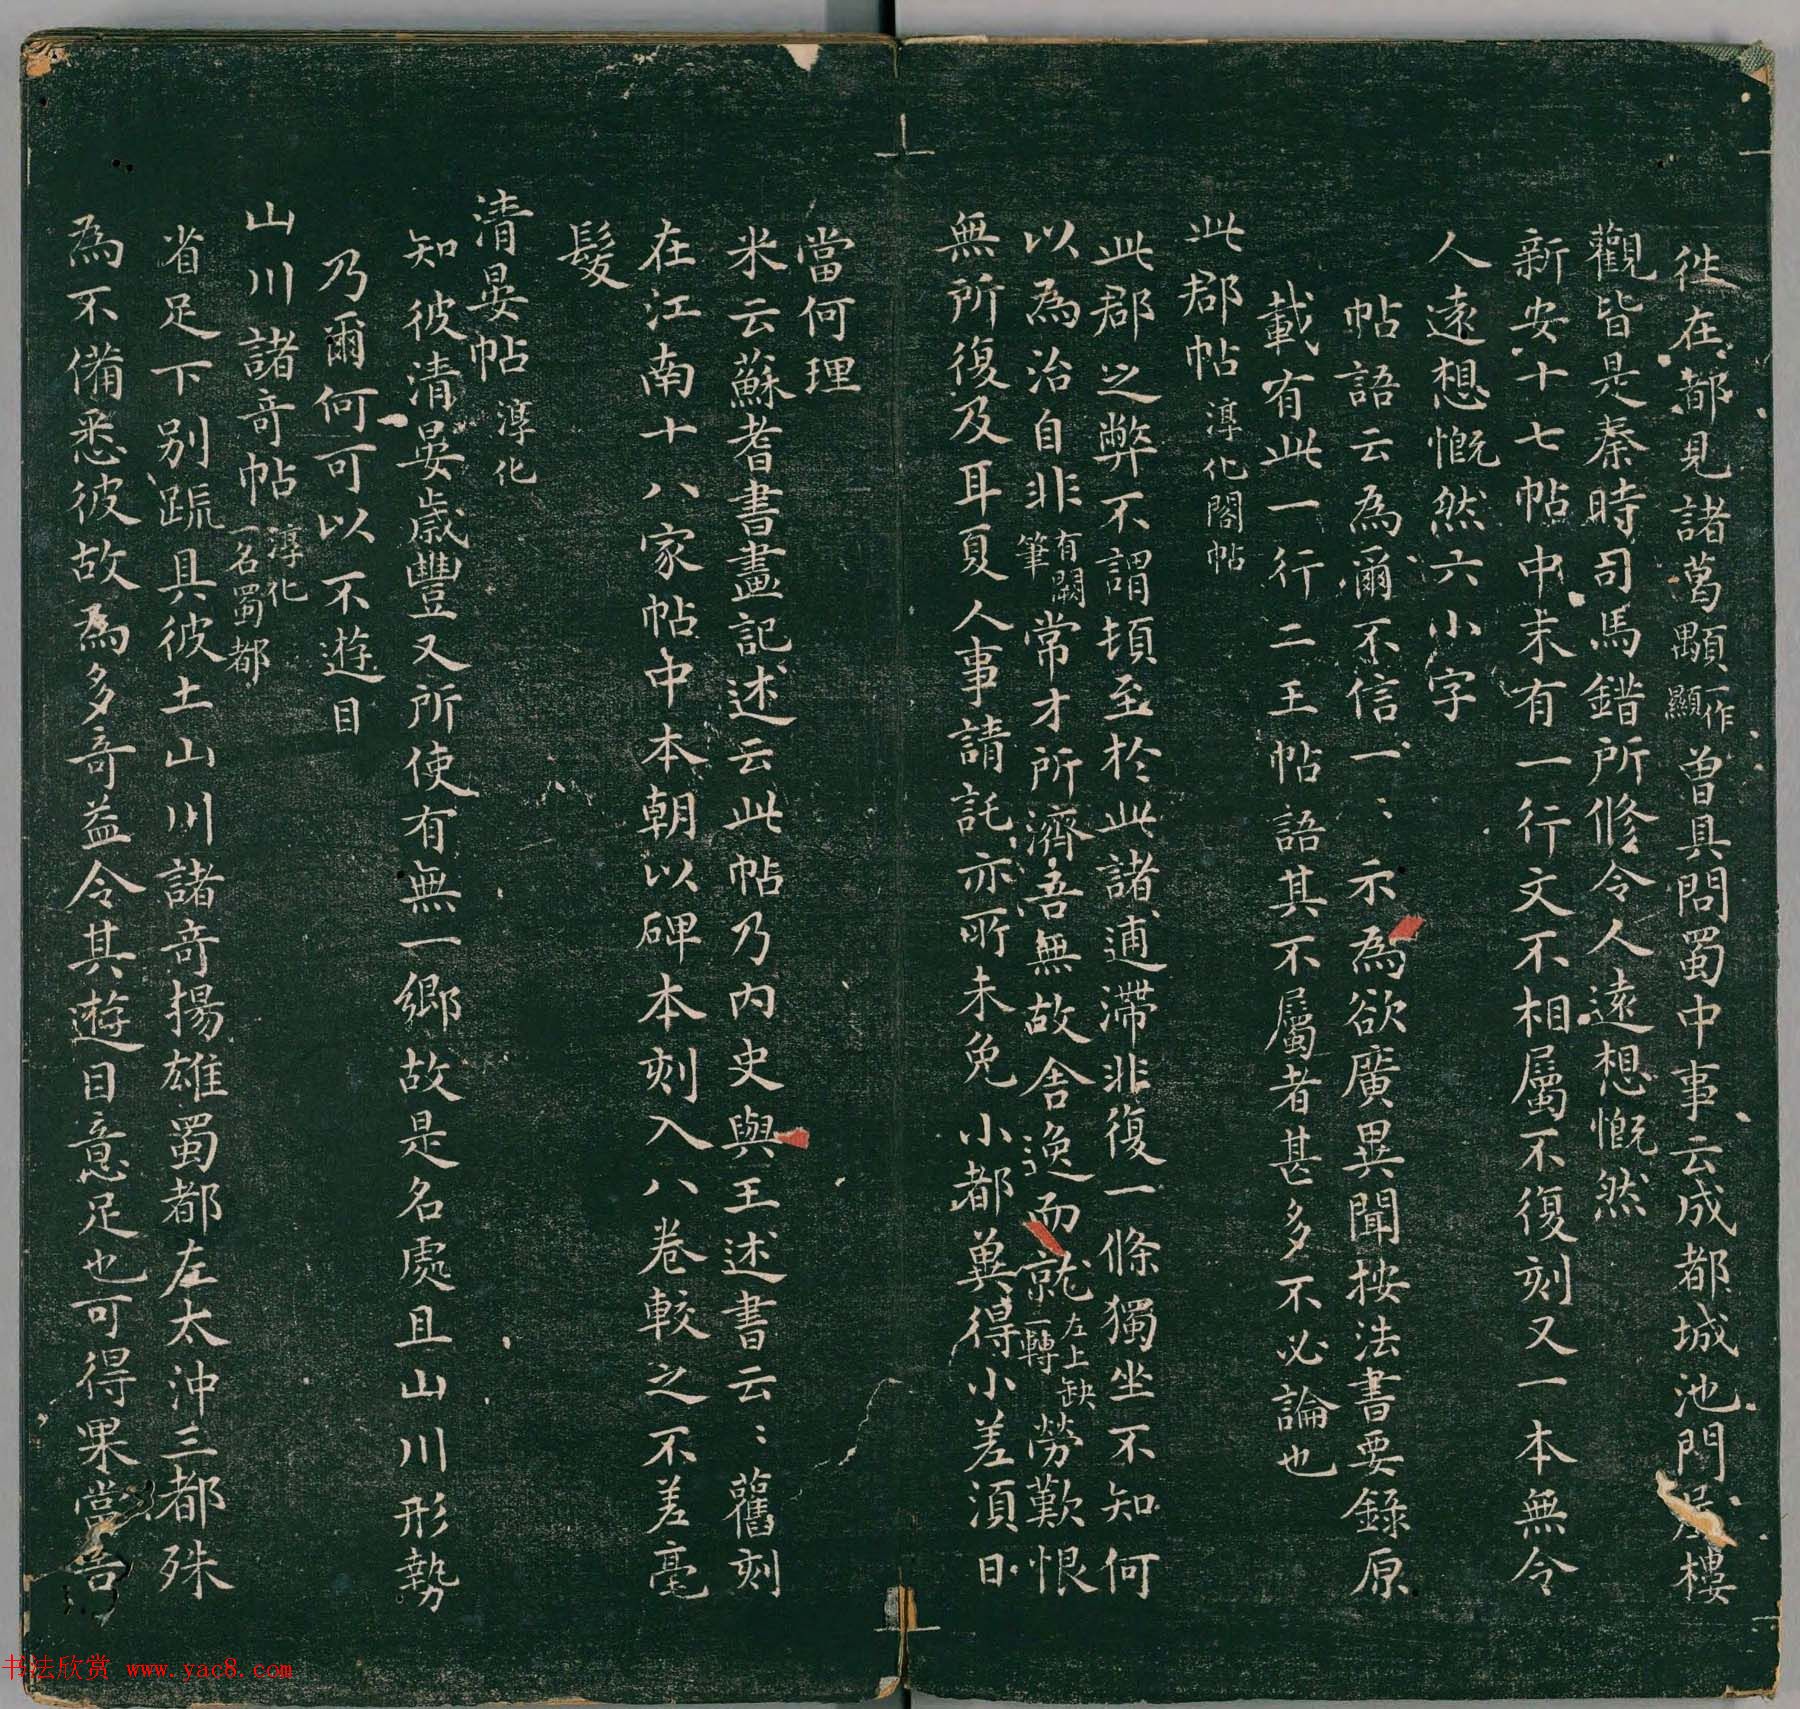 往在都見諸葛顒一作顯曽具問蜀中事云成都城池門屋樓
觀皆是秦時司馬錯所修令人遠想慨然
新安十七帖中未有一行文不相屬不復刻又一本無令
人遠想慨然六小字
帖語云為爾不信一一示為欲廣異聞按法書要錄原
載有此一行二王帖語其不屬者甚多不必論也
此郡帖 淳化閣帖
此郡之弊不謂頓至於此諸逋滯非復一條獨坐不知何
以為治自非有闕筆常才所濟吾無故舍逸而就左上缺一轉勞歎恨
無所復及耳夏人事請託亦所未免小都冀得小差須日
當何理
米云蘇耆書畫記述云此帖乃內史與王述書云云舊刻
在江南十八家帖中本朝以碑本刻入八卷較之不差毫
髮
清晏帖 淳化
知彼清晏歲豐又所使有無一鄉故是名處且山川形勢
乃爾何可以不遊目
山川諸奇帖 淳化一名蜀都
省足下别疏具彼土山川諸奇揚雄蜀都左太沖三都殊
為不備悉彼故為多奇益令其遊目意足也可得果當告
书法欣赏 www.yac8.com